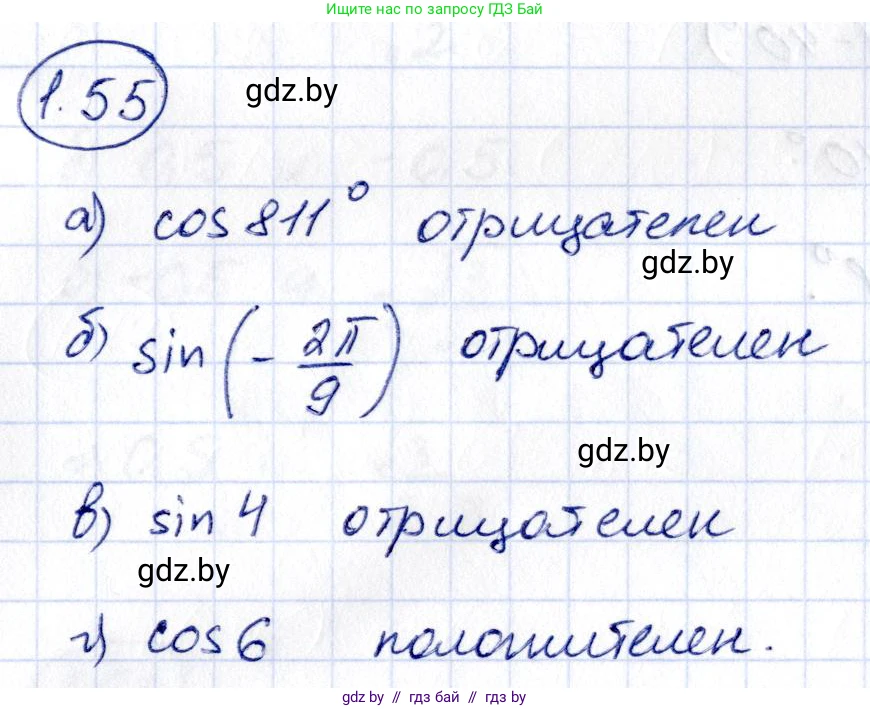 Ищите нас по запросу ГДЗ Бай
1.55
gdz.by
а) cos 811° отрицателен
gdz.by
б) sin(-2π/9) отрицателен
gdz.by
в) sin 4 отрицателен
gdz.by
г) cos 6 положителен.
gdz.by // гдз бай // gdz.by